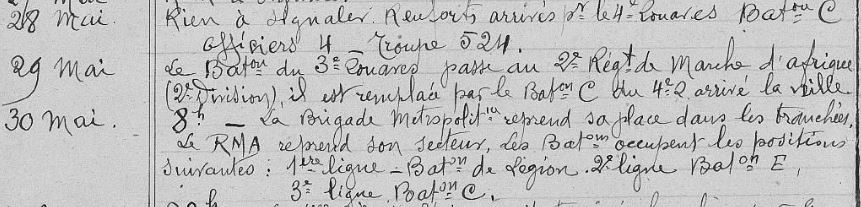 28 Mai. Rien à signaler. Renforts arrivés pr le 4e Zouaves Baton C
officiers 4 — Troupe 524.
29 Mai Le Baton du 3e Zouaves passe au 2e Régt de Marche d'afrique
(2e Division), il est remplacé par le Baton C du 4e Z arrivé la veille
30 Mai. 8h — La Brigade Metropolitna reprend sa place dans les tranchées.
Le RMA reprend son secteur, Les Batons occupent les positions
suivantes : 1ere ligne - Baton de Légion. 2e ligne Baton E,
3e ligne. Baton C.